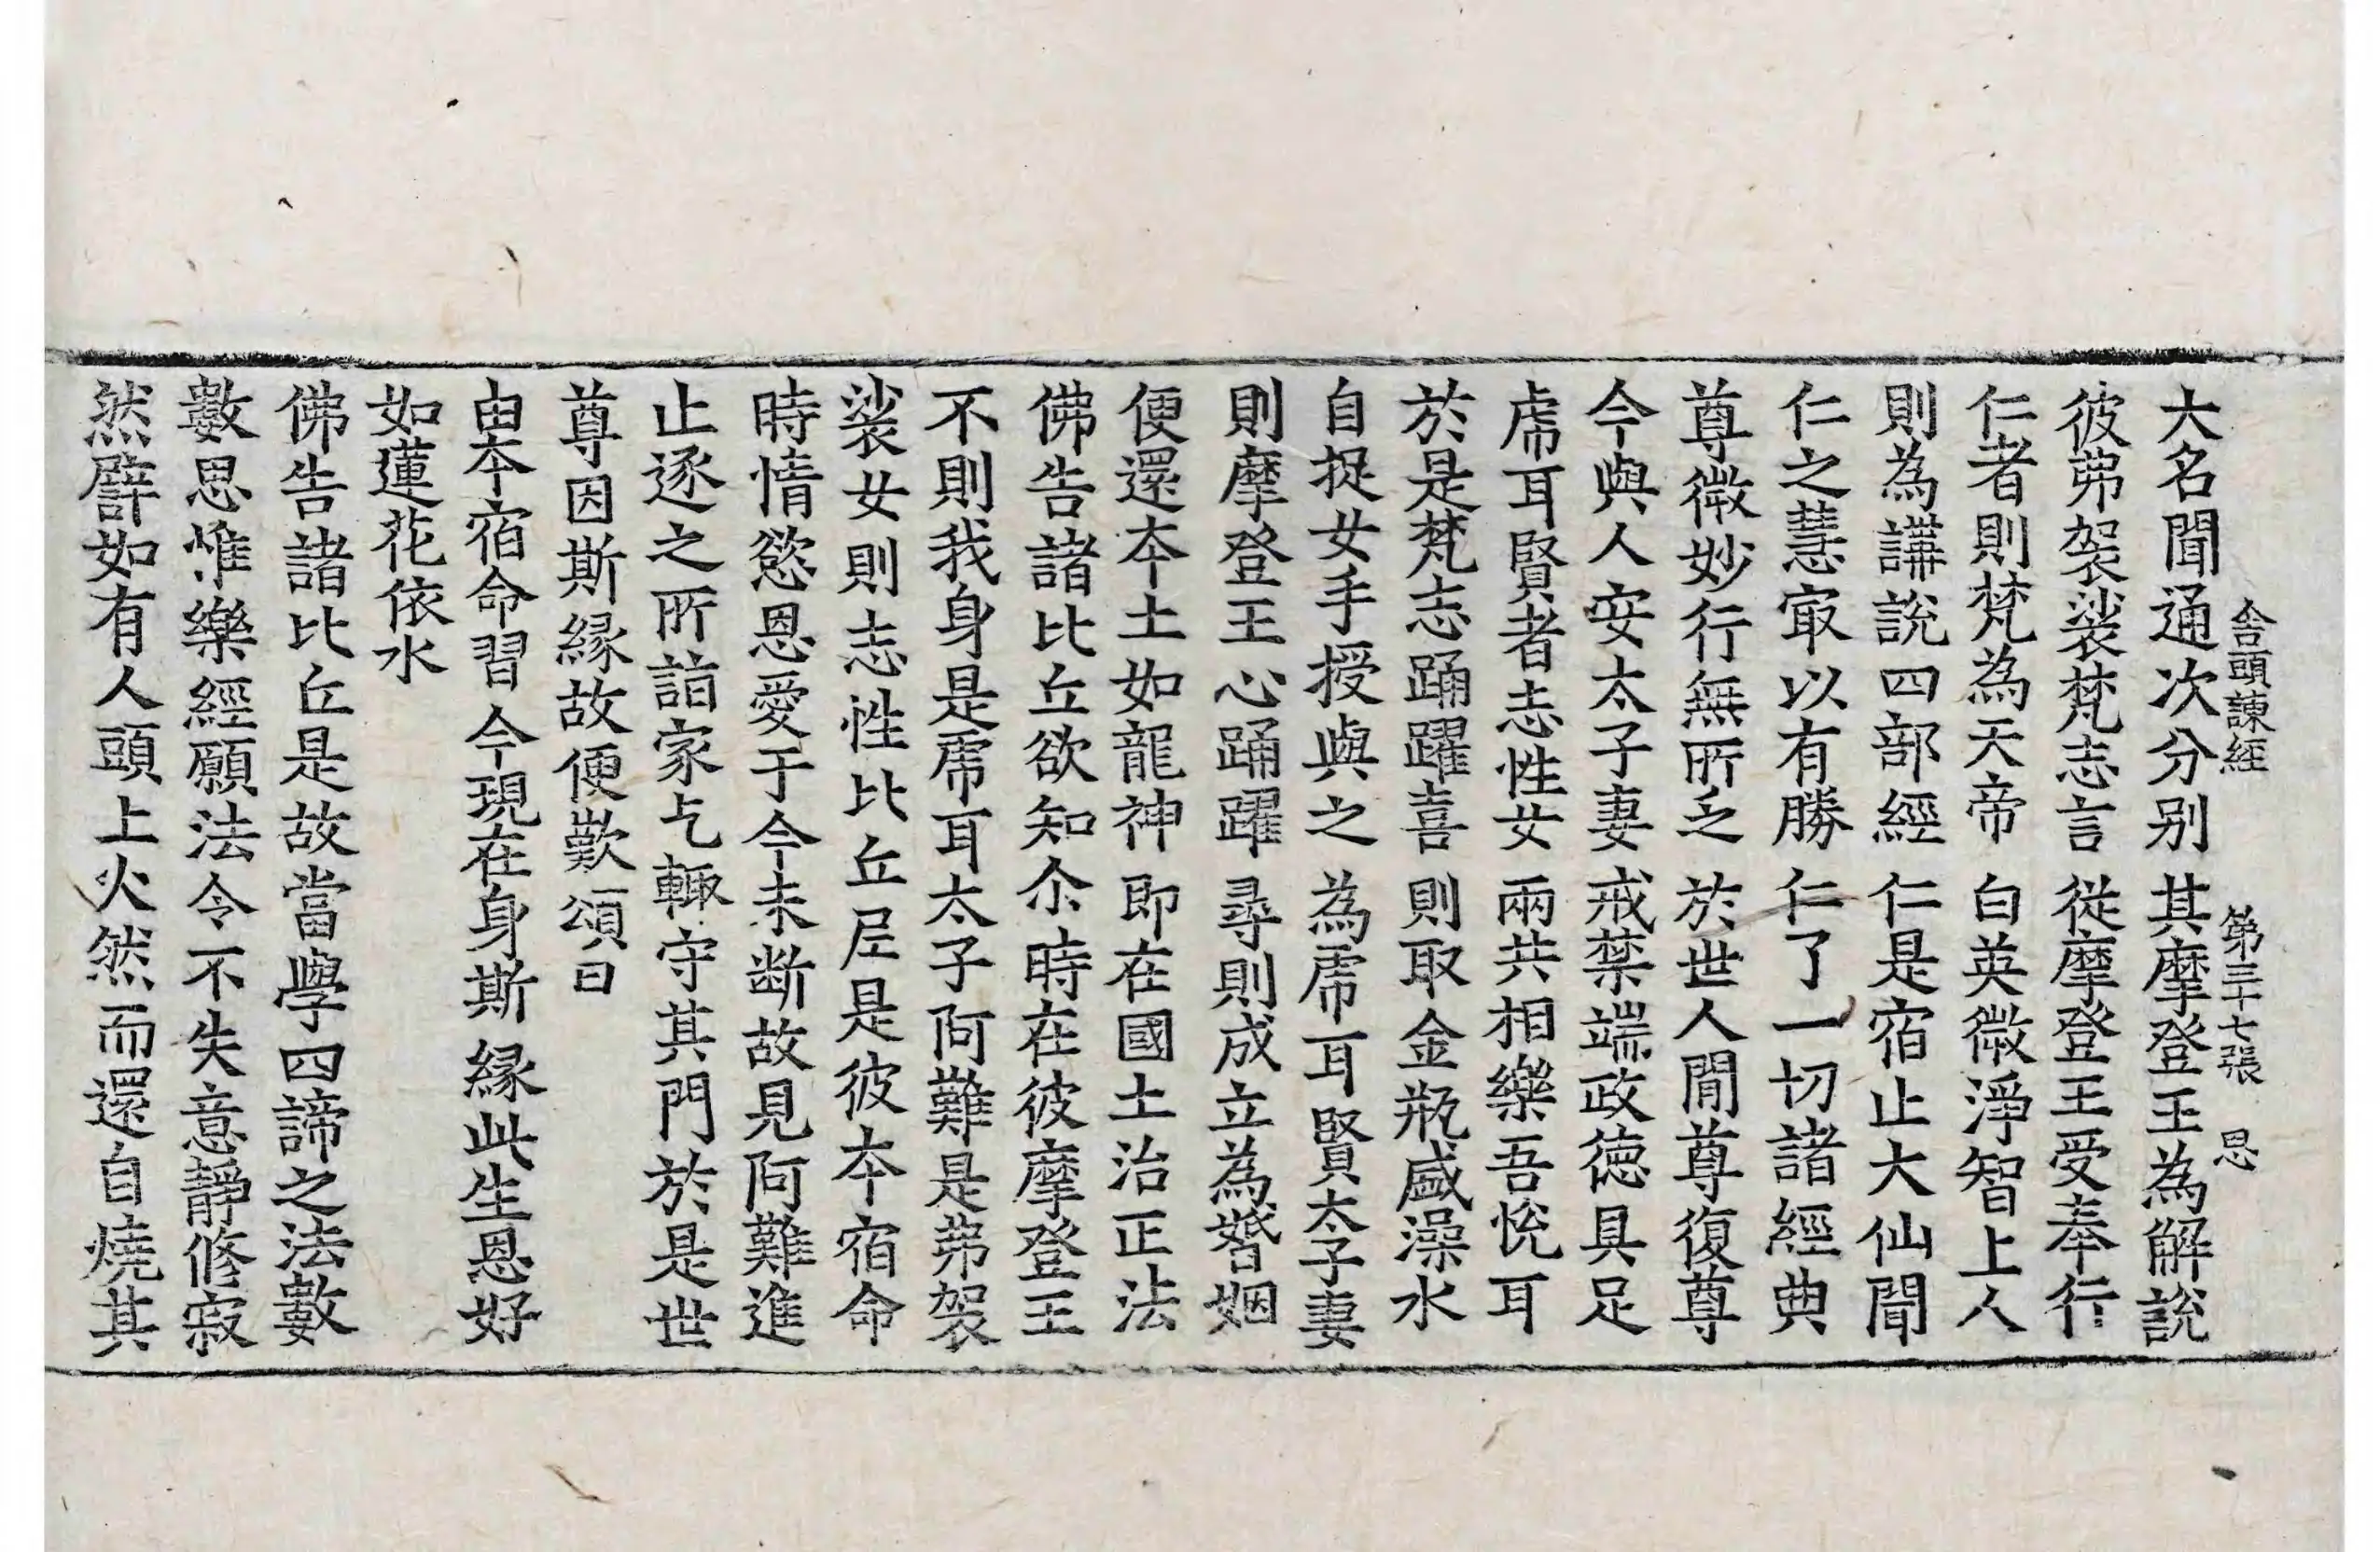 舎頭諫經　第三十七張　恩
大名聞通次分别　其摩登王為解說
彼弗袈裟梵志言　從摩登王受奉行
仁者則梵為天帝　白英微淨智上人
則為講說四部經　仁是宿止大仙聞
仁之慧寂以有勝　仁了一切諸經典
尊微妙行無所乏　於世人閒尊復尊
今與人安太子妻　戒禁端政德具足
虎耳賢者志性女　兩共相樂吾恱耳
於是梵志踊躍喜　則取金瓶盛澡水
自捉女手授與之　為虎耳賢太子妻
則摩登王心踊躍　尋則成立為婚姻
便還本土如龍神　即在國土治正法
佛告諸比丘欲知尒時在彼摩登王
不則我身是虎耳太子阿難是弗袈
裟女則志性比丘尼是彼本宿命
時情慾恩愛于今未断故見阿難進
止逐之所詣家乞輙守其門於是世
尊因斯緣故便歎頌曰
由本宿命習　今現在身斯　緣此生恩好
如蓮花依水
佛告諸比丘是故當學四諦之法數
數思惟樂經願法令不失意靜修寂
然辟如有人頭上火然而還自燒其